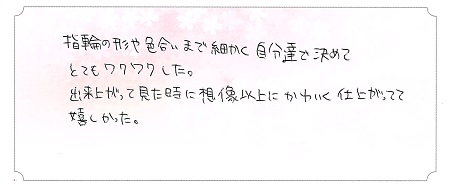 指輪の形や色合いまで細かく自分達で決めて
とてもワクワクした。
出来上がって見た時に想像以上にかわいく仕上がってて
嬉しかった。